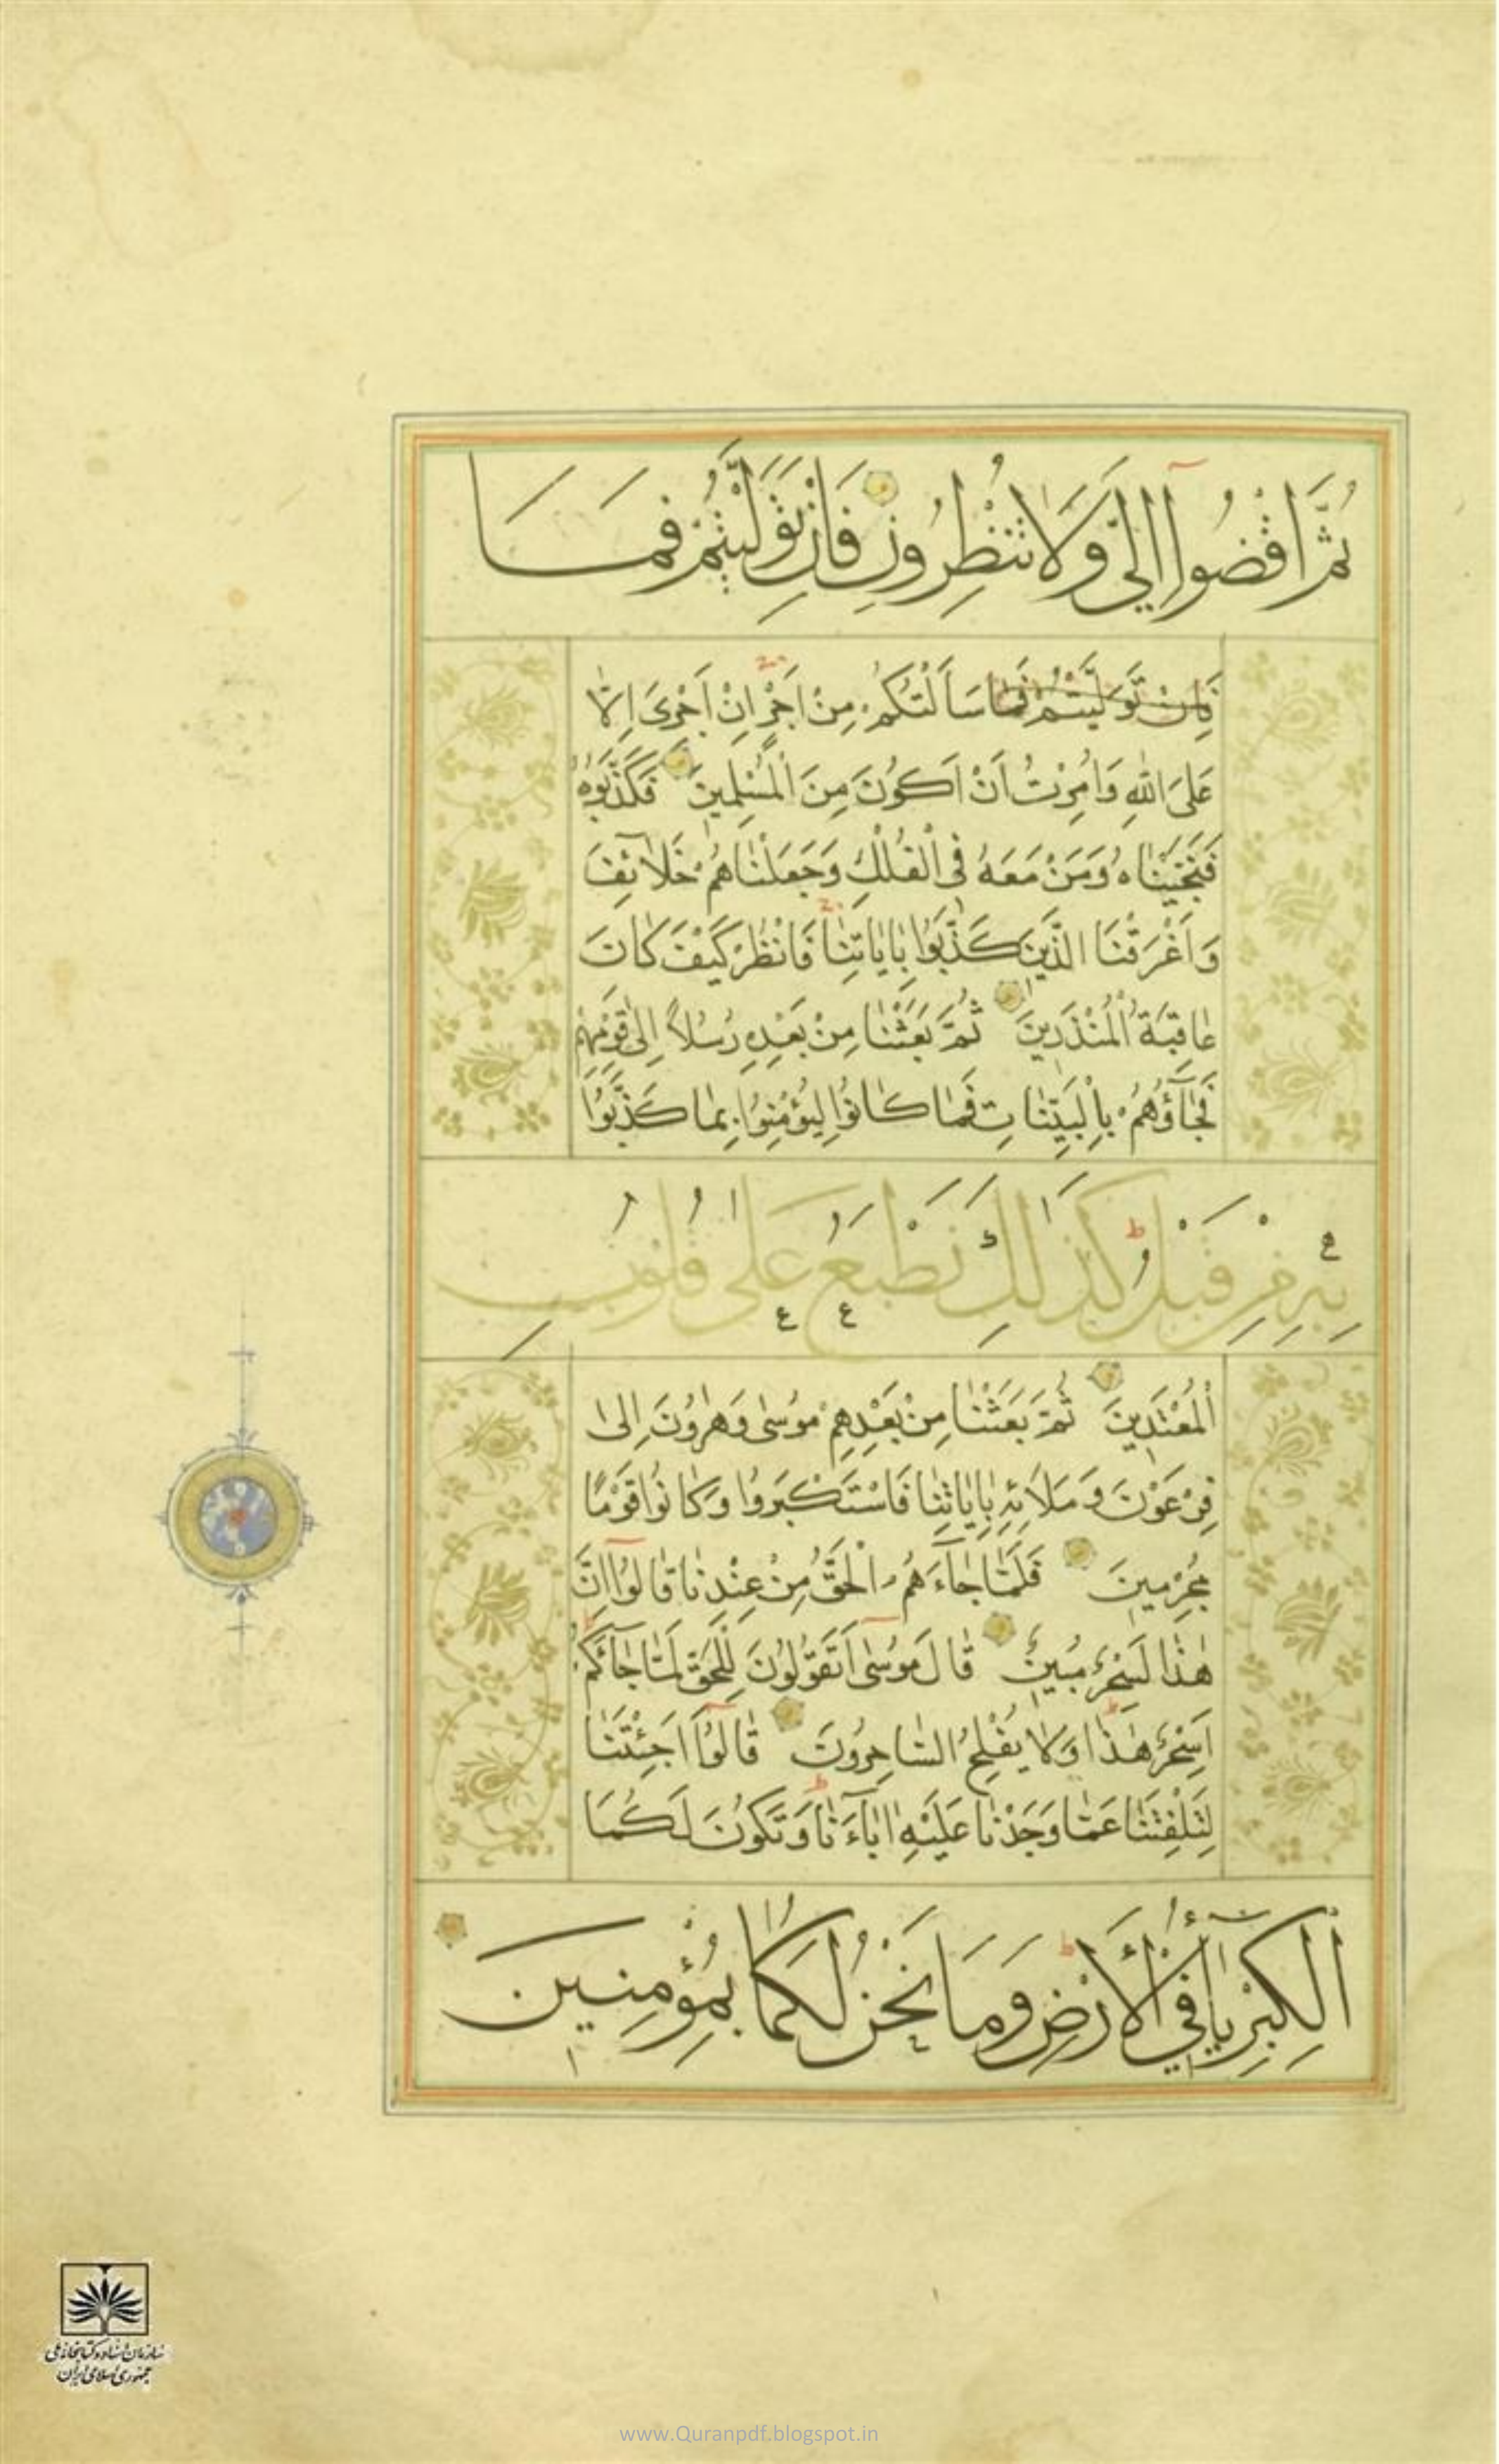 ثُمَّ اقْضُوا إِلَيَّ وَلَا تُنْظِرُونِ فَإِنْ تَوَلَّيْتُمْ فَمَا
فَإِنْ تَوَلَّيْتُمْ فَمَا سَأَلْتُكُمْ مِنْ أَجْرٍ إِنْ أَجْرِيَ إِلَّا
عَلَى اللهِ وَأُمِرْتُ أَنْ أَكُونَ مِنَ الْمُسْلِمِينَ فَكَذَّبُوهُ
فَنَجَّيْنَاهُ وَمَنْ مَعَهُ فِي الْفُلْكِ وَجَعَلْنَاهُمْ خَلَائِفَ
وَأَغْرَقْنَا الَّذِينَ كَذَّبُوا بِايَاتِنَا فَانْظُرْ كَيْفَ كَانَ
عَاقِبَةُ الْمُنْذَرِينَ ثُمَّ بَعَثْنَا مِنْ بَعْدِهِ رُسُلًا إِلَى قَوْمِهِمْ
فَجَاؤُهُمْ بِالْبَيِّنَاتِ فَمَا كَانُوا لِيُؤْمِنُوا بِمَا كَذَّبُوا
بِهِ مِنْ قَبْلُ كَذَلِكَ نَطْبَعُ عَلَى قُلُوبِ
الْمُعْتَدِينَ ثُمَّ بَعَثْنَا مِنْ بَعْدِهِمْ مُوسَى وَهَرُونَ إِلَى
فِرْعَوْنَ وَمَلَائِهِ بِايَاتِنَا فَاسْتَكْبَرُوا وَكَانُوا قَوْمًا
مُجْرِمِينَ فَلَمَّا جَاءَهُمُ الْحَقُّ مِنْ عِنْدِنَا قَالُوا إِنَّ
هَذَا لَسِحْرٌ مُبِينٌ قَالَ مُوسَى أَتَقُولُونَ لِلْحَقِّ لَمَّا جَائَكُمْ
أَسِحْرٌ هَذَا وَلَا يُفْلِحُ السَّاحِرُونَ قَالُوا أَجِئْتَنَا
لِتَلْفِتَنَا عَمَّا وَجَدْنَا عَلَيْهِ ابَاءَنَا وَتَكُونَ لَكُمَا
الْكِبْرِيَاءُ فِي الْأَرْضِ وَمَا نَحْنُ لَكُمَا بِمُؤْمِنِينَ
سازمان اسناد و کتابخانه ملی
جمهوری اسلامی ایران
www.Quranpdf.blogspot.in